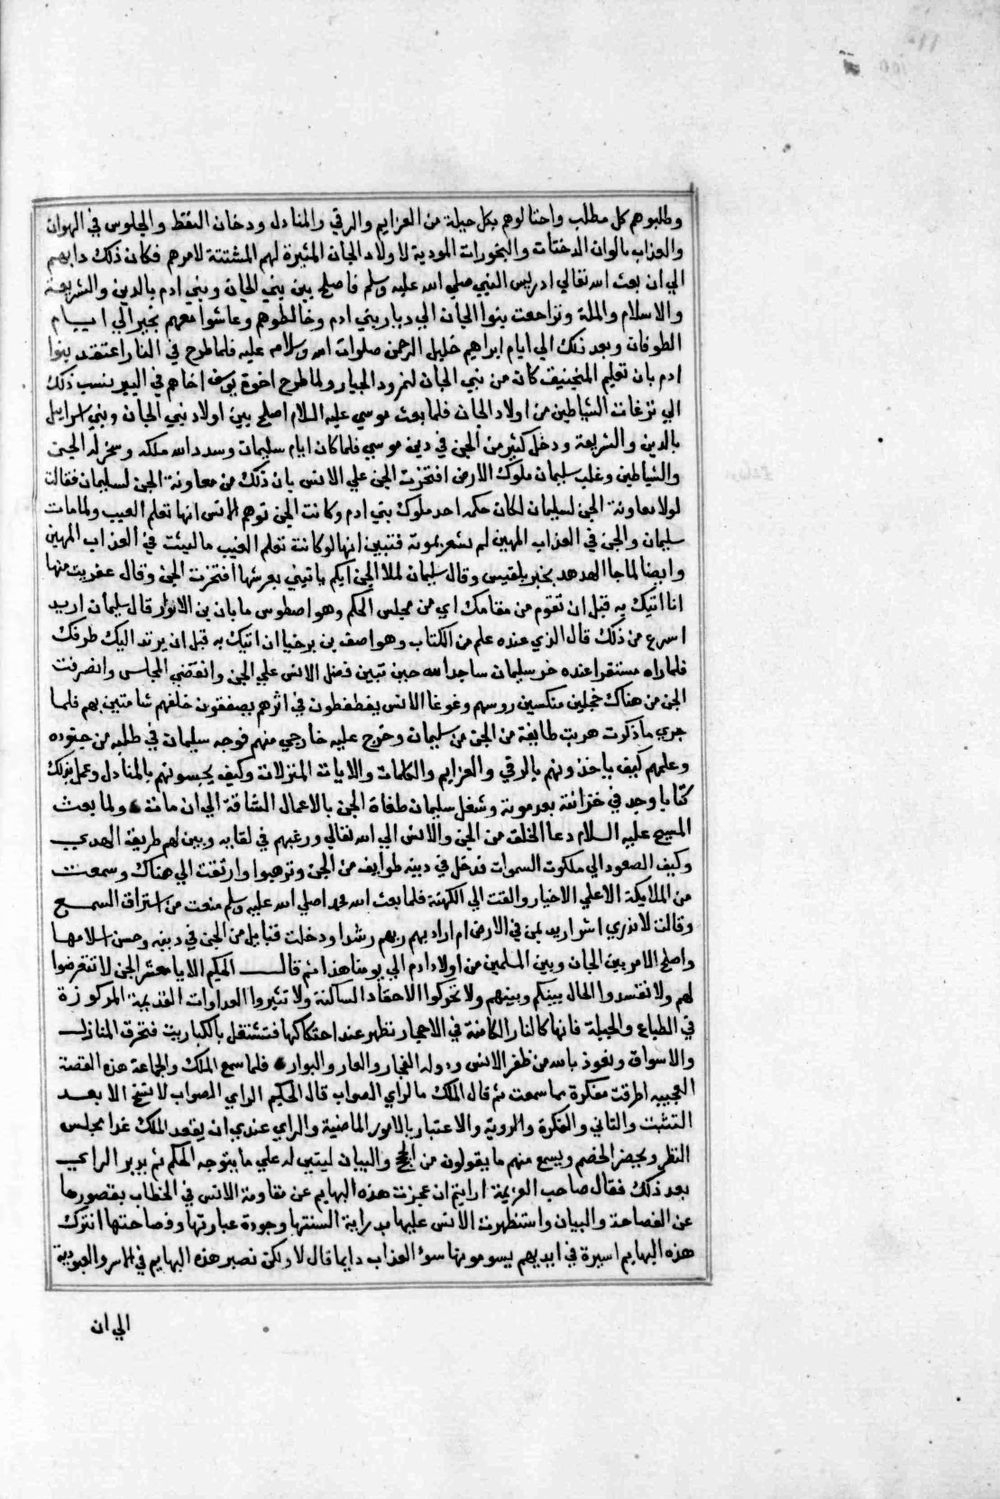 وطلبوهم كل مطلب واحتالوهم بكل حيلة من العزايم والرقي والمنادل ودخان النفط والجلوس في الهوان
والعذاب بالوان الدخنات والبخورات الموديه لاولاد الجان المثيرة لهم المشتتة لامرهم فكان ذلك دابهم
الي ان بعث الله تعالي ادريس النبي صلي الله عليه وسلم فاصلح بين بني الجان وبني ادم بالدين والشريعة
والاسلام والملة وتراجعت بنوا الجان الي ديار بني ادم وخالطوهم وعاشوا معهم بخير الي ايام
الطوفان وبعد ذلك الي ايام ابراهيم خليل الرحمن صلوات الله وسلامه عليه فلما طرح في النار اعتقد بنوا
ادم بان تعليم المنجنيق كان من بني الجان لنمرود الجبار ولما طرح اخوة يوسف اخاهم في البير ينسب ذلك
الي نزغات الشياطين من اولاد الجان فلما بعث موسي عليه السلام اصلح بين اولاد بني الجان وبني اسرايل
بالدين والشريعة ودخل كثير من الجن في دين موسي فلما كان ايام سليمان وسدد الله ملكه وسخر له الجن
والشياطين وغلب سليمان ملوك الارض افتخرت الجن علي الانس بان ذلك من معاونة الجن لسليمان فقالت
لولا معاونة الجن لسليمان لكان حكمه احد ملوك بني ادم وكانت الجن توهم الانس انها تعلم الغيب ولما مات
سليمان والجن في العذاب المهين لم تشعر بموته فتبين انها لو كانت تعلم الغيب ما لبثت في العذاب المهين
وايضا لما جا الهدهد بخبر بلقيس وقال سليمان لملا الجن ايكم ياتيني بعرشها افتخرت الجن وقال عفريت منها
انا اتيك به قبل ان تقوم من مقامك اي من مجلس الحكم وهو اصطوس مابان بن الانوار قال سليمان اريد
اسرع من ذلك قال الذي عنده علم من الكتاب وهو اصف بن برخيا ان اتيك به قبل ان يرتد اليك طرفك
فلما راه مستقرا عنده خر سليمان ساجدا لله حين تبين فضل الانس علي الجن وانقضي المجلس وانصرفت
الجن من هناك خجلين منكسين روسهم وغوغا الانس يغطغطون في اثرهم يصفقون خلفهم شامتين بهم فلما
جري ما ذكرت هربت طايفة من الجن من سليمان وخرج عليه خارجي منهم فوجه سليمان في طلبه من جنوده
وعلمهم كيف ياخذونهم بالرقي والعزايم والكلمات والايات المنزلات وكيف يحبسونهم بالمنادل وعمل بذلك
كتابا وجد في خزانته بعد موته وشغل سليمان طغاة الجن بالاعمال الشاقة الي ان مات ولما بعث
المسيح عليه السلام دعا الخلق من الجن والانس الي الله تعالي ورغبهم في لقايه وبين لهم طريقة الهدي
وكيف الصعود الي ملكوت السموات فدخل في دينه طوايف من الجن وترهبوا وارتقت الي هناك وسمعت
من الملايكة الاعلي الاخبار والقت الي الكهنة فلما بعث الله محمدا صلي الله عليه وسلم منعت من استراق السمع
وقالت لا ندري اشر اريد بمن في الارض ام اراد بهم ربهم رشدا ودخلت قبايل من الجن في دينه وحسن اسلامها
واصلح الامر بين الجان وبين المسلمين من اولاد ادم الي يومنا هذا ثم قال الحكيم الا يا معشر الجن لا تتعرضوا
لهم ولا تفسدوا الحال بينكم وبينهم ولا تحركوا الاحقاد الساكنة ولا تثيروا العداوات القديمة المركوزة
في الطباع والجبلة فانها كالنار الكامنة في الاحجار تظهر عند احتكاكها فتشتعل بالكباريت فتحرق المنازل
والاسواق ونعوذ بالله من ظفر الانس ودولة الفجار والعار والبوار فلما سمع الملك والجماعة هذه القصة
العجيبه اطرقت مفكرة بما سمعت ثم قال الملك ما الراي الصواب قال الحكيم الراي الصواب لا ينتج الا بعد
التثبت والتاني والفكرة والروية والاعتبار بالامور الماضية والراي عندي ان يقعد الملك غدا مجلس
النظر ويحضر الخصم ويسمع منهم ما يقولون من الحجج والبيان ليتبين له علي ما يتوجه الحكم ثم يدبر الراي
بعد ذلك فقال صاحب العزيمة ارايتم ان عجزت هذه البهايم عن مقاومة الانس في الخطاب بقصورها
عن الفصاحة والبيان واستظهرت الانس عليها بدراية السنتها وجودة عبارتها وفصاحتها انترك
هذه البهايم اسيرة في ايديهم يسومونها سوء العذاب دايما قال لا ولكن تصبر هذه البهايم في الاسر والعبودية
الي ان